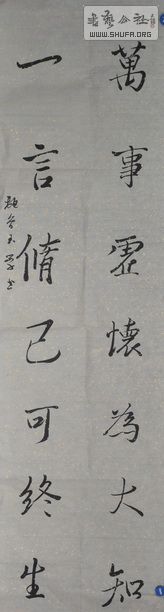 書藝公社
WWW.SHUFA.ORG
萬事虛懷為大知
一言脩己可終生